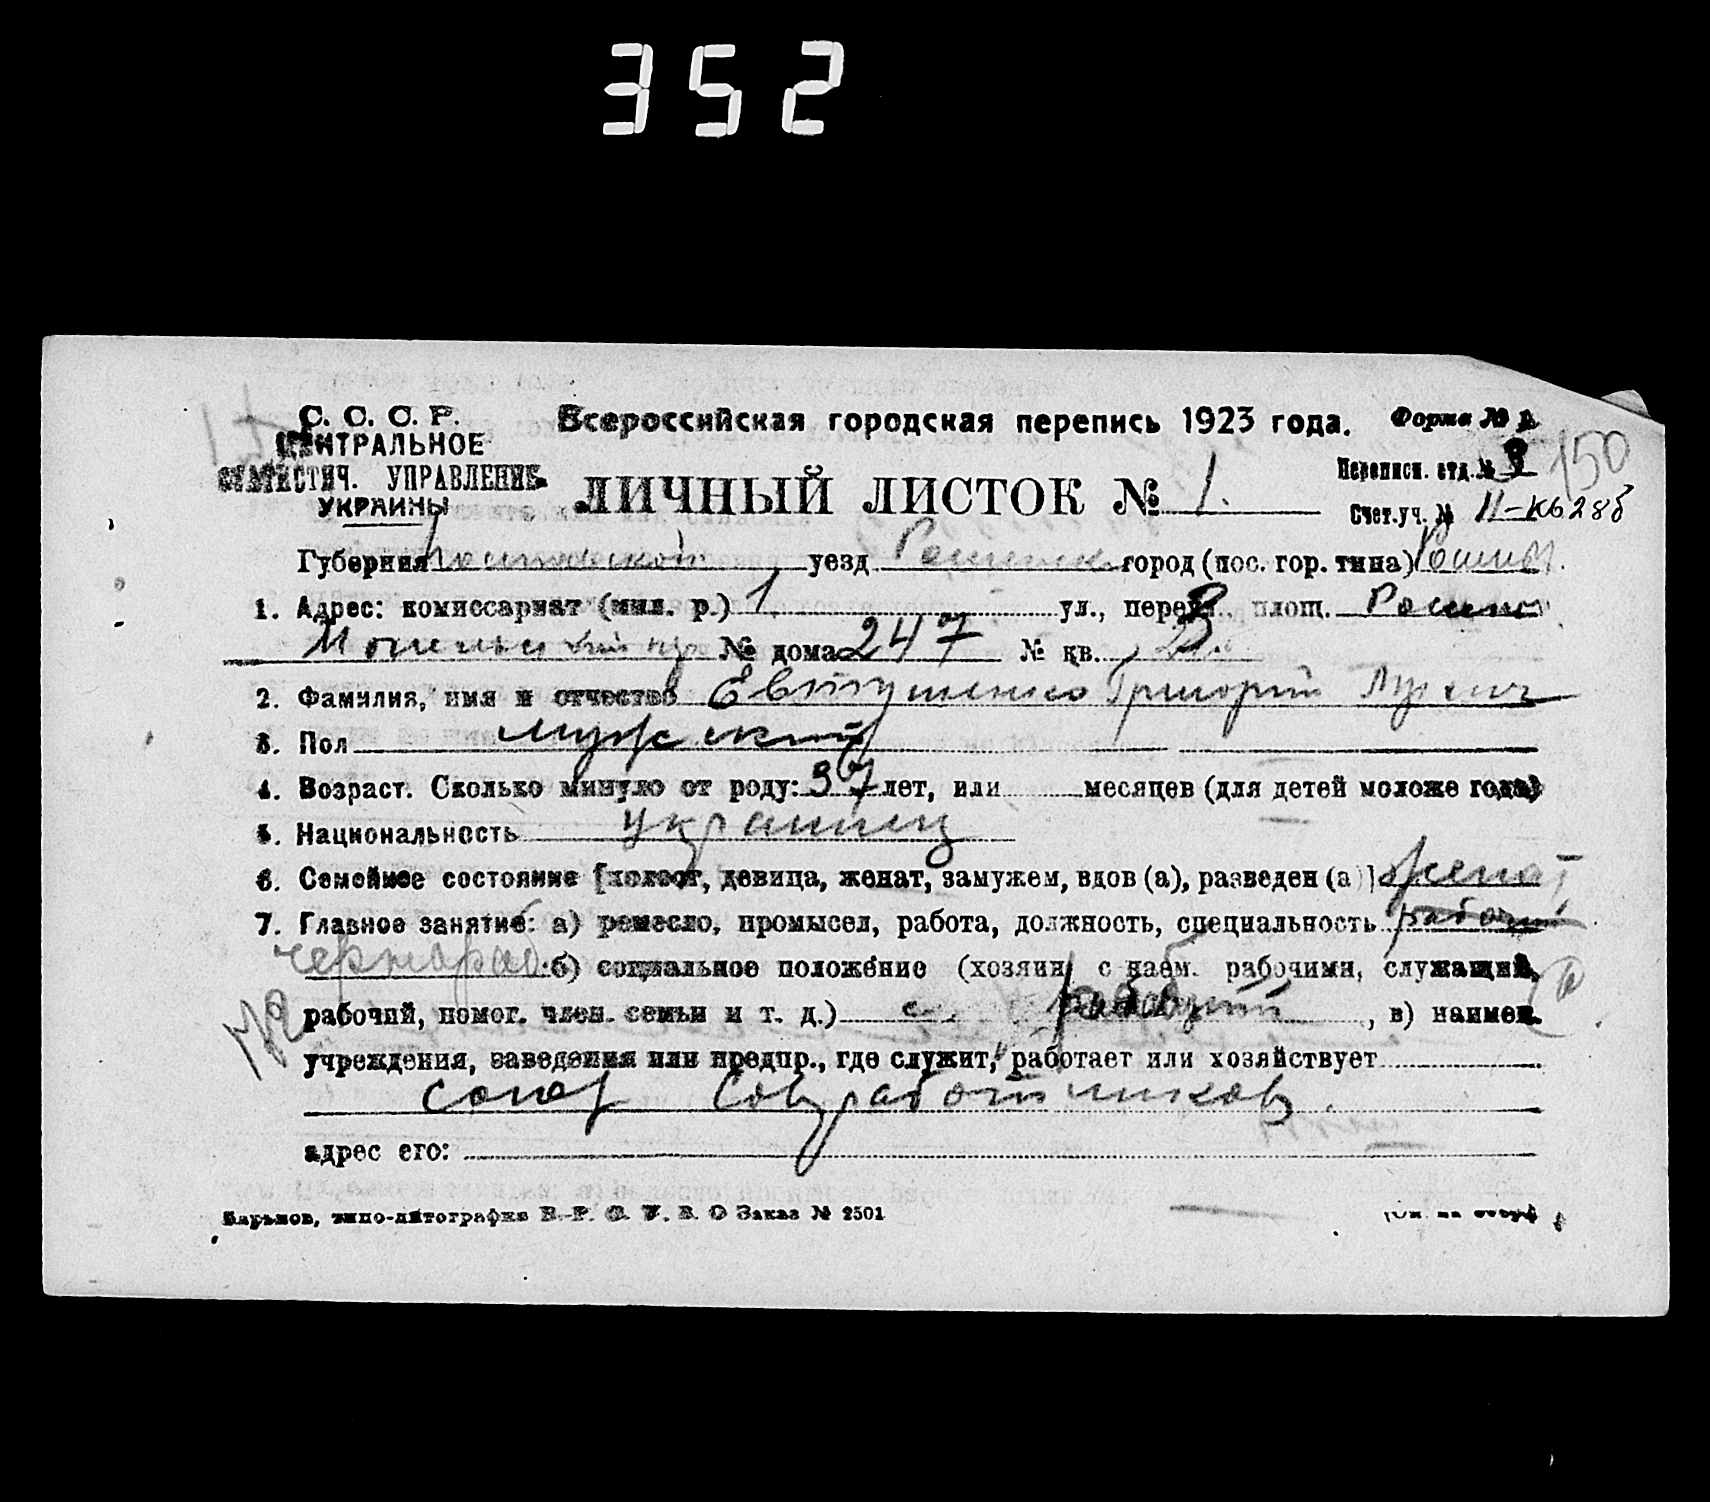 352
С. С. С. Р.
ЦЕНТРАЛЬНОЕ
СТАТИСТИЧ. УПРАВЛЕНИЕ
УКРАИНЫ
Всероссийская городская перепись 1923 года.
Форма №
150
ЛИЧНЫЙ ЛИСТОК № 1.
Переписн. отд. №
Счет. уч. № 11-К6286
Губерния уезд город (пос. гор. типа)
1. Адрес: комиссариат (мил. р.) 1 ул., переул., площ.
№ дома 247 № кв.
2. Фамилия, имя и отчество Евтушенко Григорий
3. Пол мужской
4. Возраст. Сколько минуло от роду: 37 лет, или месяцев (для детей моложе года)
5. Национальность украинец
6. Семейное состояние [холост, девица, женат, замужем, вдов (а), разведен (а)] женат
7. Главное занятие: а) ремесло, промысел, работа, должность, специальность рабочий
чернораб. б) социальное положение (хозяин с наем. рабочими, служащий,
рабочий, помог. член. семьи и т. д.) рабочий, в) наимен.
учреждения, заведения или предпр., где служит, работает или хозяйствует
союз Совработников.
адрес его:
Харьков, типо-литография В.-Р. Ф. У. В. О Заказ № 2501